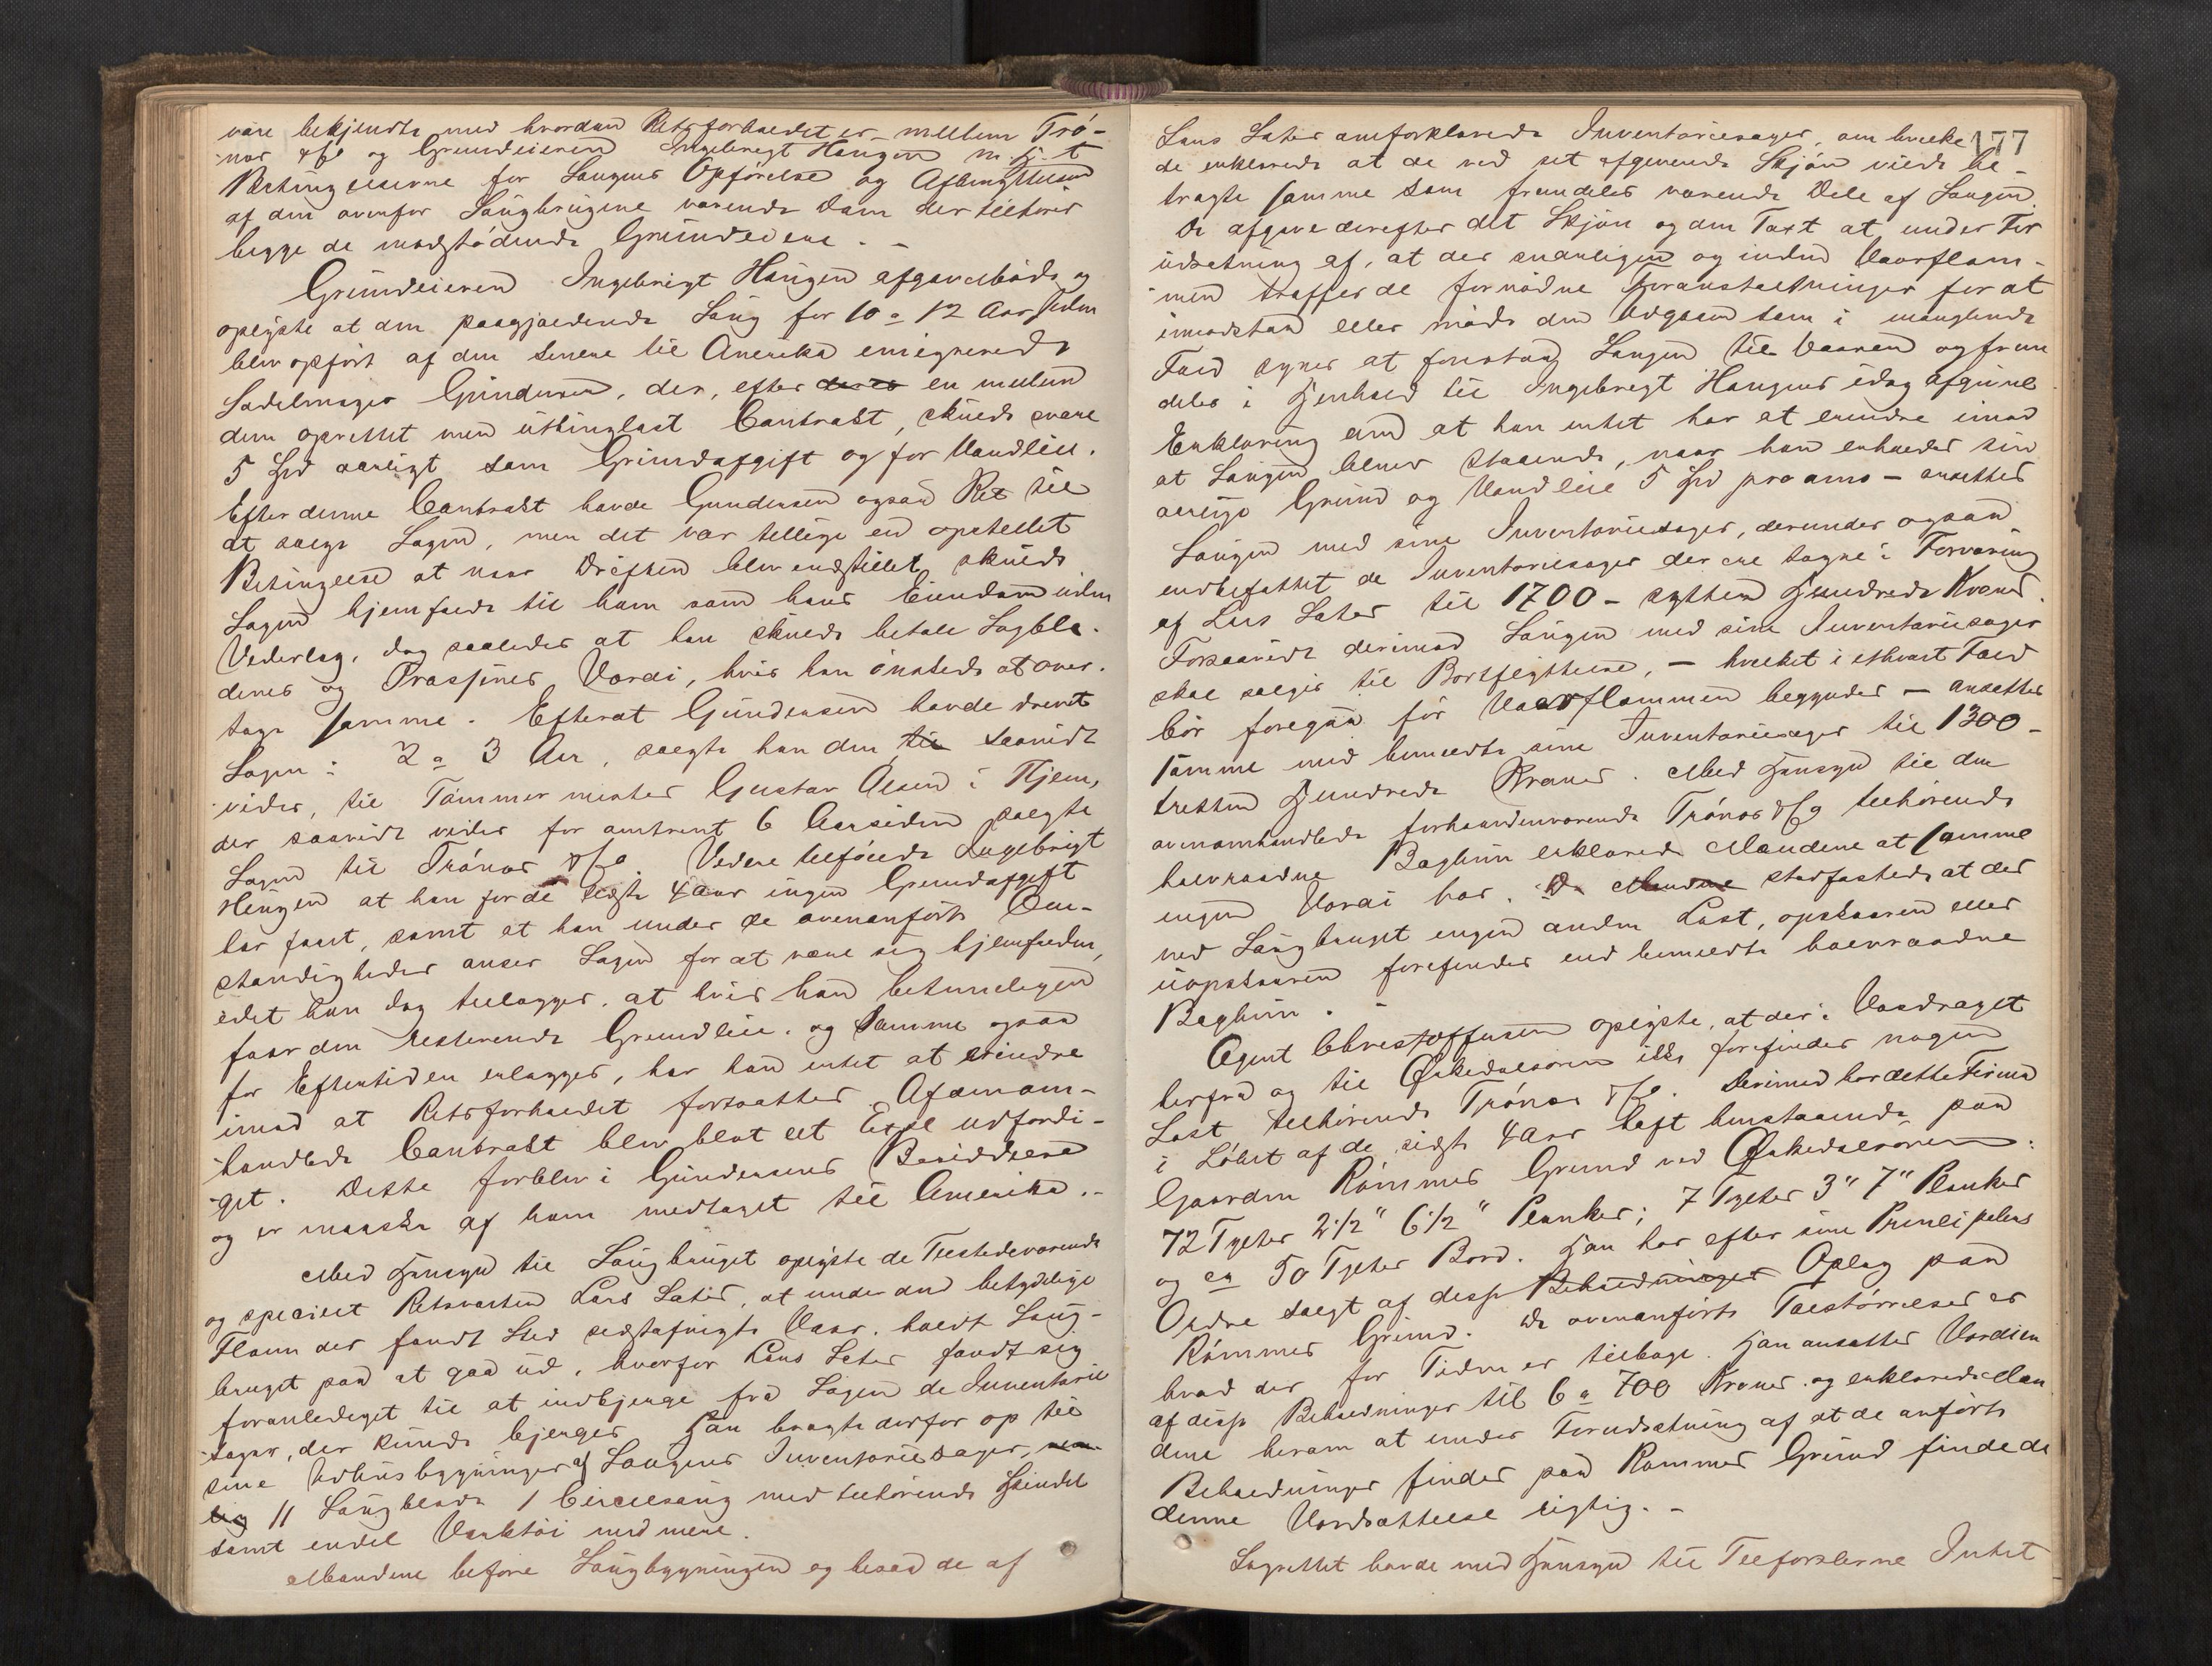 være bekjendte med hvordan Retsforholdet er mellem Trø-
næs & Co og Grundeieren Ingebrigt Haugen m. H. t.
Betingelserne for Saugens Opførelse og Afbenyttelsen
af den ovenfor Saugbrugene værende Dam der tilhører
begge de modstødende Grundeiere. -
Grundeieren Ingebrigt Haugen afgav Møde og
oplyste at den paagjældende Saug for 10 a 12 Aar siden
blev opført af den senere til Amerika emigrerede
Sadelmager Gundersen, der, efter en mellem
dem oprettet men uthinglæst Contrakt, skulde svare
5 Spd aarligt som Grundafgift og for Vandleie.
Efter denne Contrakt havde Gundersen ogsaa Ret til
at sælge Sagen, men det var tillige en opstillet
Betingelse at naar Driften blev indstillet, skulde
Sagen hjemfalde til ham som hans Eiendom uden
Vederlag, dog saaledes at han skulde betale Sagbla-
denes ogVærdi, hvis han ønskede at over-
tage samme. Efterat Gundersen havde drevet
Sagen i 2 a 3 Aar, solgte han den til saavidt
vides, til Tømmermester Gustav Olsen i Hjem,
der saavidt vides for omtrent 6 Aar siden solgte
Sagen til Trønæs & Co. Videre tilføiede Ingebrigt
Haugen at han for de sidste 4 Aar ingen Grundafgift
har faaet, samt at han under de ovenanførte Om-
stændigheder anser Sagen for at være sig hjemfalden,
idet han dog tillægger, at hvis han betimeligen
faar den resterende Grundleie, og samme ogsaa
for Eftertiden erlægges, har han intet at erindre
imod at Retsforholdet fortsættes. Afomom-
handlede Contrakt blev blot et Expl udfærdi-
get. Dette forblev i Gundersens Besiddelse
og er maaske af ham medtaget til Amerika. -
Med Hensyn til Saugbruget oplyste de Tilstedeværende
og specielt Retsvarten Lars Sæter, at under den betydelige
Flom der fandt Sted sidstafvigte Vaar, holdt Saug-
bruget paa at gaa ud, hvorfor Lars Sæter fandt sig
foranlediget til at indbjerge fra Sagen de Inventarie
sager, der kunde bjerges. Han bragte derfor op til
sine Udhusbygninger af Saugens Inventariesager, nem-
lig 11 Saugblade 1 Circelsaug med tilhørende Spindel
samt endel Værktøi med mere.
Mændene beføre Saugbygningen og besaa de af
177
Lars Sæter omforklarede Inventariesager, om hvilke
de erklærede at de ved sit afgivende Skjøn vilde be-
tragte samme som fremdeles værende Dele af Saugen.
De afgave derefter det Skjøn og den Taxt at under For
udsætning af, at der snarligen og inden Vaarflom-
men træffes de fornødne Foranstaltninger for at
imodstaa eller møde den Udgaaen som i manglende
Fald synes at forestaa Saugen til Vaaren og frem
deles i Henhold til Ingebrigt Haugens idag afgivne
Erklæring om at han intet har at erindre imod
at Saugen bliver staaende, naar han erholder sin
aarlige Grund og Vandleie 5 Spd pro anno - ansættes
Saugen med sine Inventariesager, derunder ogsaa
indbefattet de Inventariesager der ere tagne i Forvaring
af Lars Sæter til 1700 - sytten Hundrede Kroner.
Forsaavidt derimod Saugen med sine Inventariesager
skal sælges til Bortflyttelse, - hvilket i ethvert Fald
bør foregaa før Vaarflommen begynder - ansættes
samme med bemeldte sine Inventariesager til 1300 -
tretten Hundrede Kroner. Med Hensyn til den
ovenomhandlede forhaandenværende Trønæs & Co tilhørende
halvraadne Baghun erklærede Mændene at samme
ingen Værdi har. De Mændene stadfæstede at der
ved Saugbruget ingen anden Last, opskaaren eller
uopskaaren forefindes end bemeldte halvraadne
Baghun. -
Agent Christoffersen oplyste, at der i Vasdraget
herfra og til Ørkedalsøren ikke forefindes nogen
Last tilhørende Trønæs & Co. Derimod har dette Firma
i Løbet af de sidste 4 Aar havt henstaaende paa
Gaarden Rømmes Grund ved Ørkedalsøren:
72 Tylter 2 1/2" 6 1/2" Planker; 7 Tylter 3" 7" Planker
og ca 50 Tylter Bord. Han har efter sine Principalers
Ordre solgt af disse Beholdninger Oplag paa
Rømmes Grund. De ovenanførte Talstørrelser er
hvad der for Tiden er tilbage. Han ansætter Værdien
af disse Beholdninger til 6 a 700 Kroner og erklærede Mæn
dene herom at under Forudsætning af at de anførte
Beholdninger findes paa Rømmes Grund finde de
denne Værdsættelse rigtig. -
Lagrettet havde med Hensyn til Tilførslerne Intet